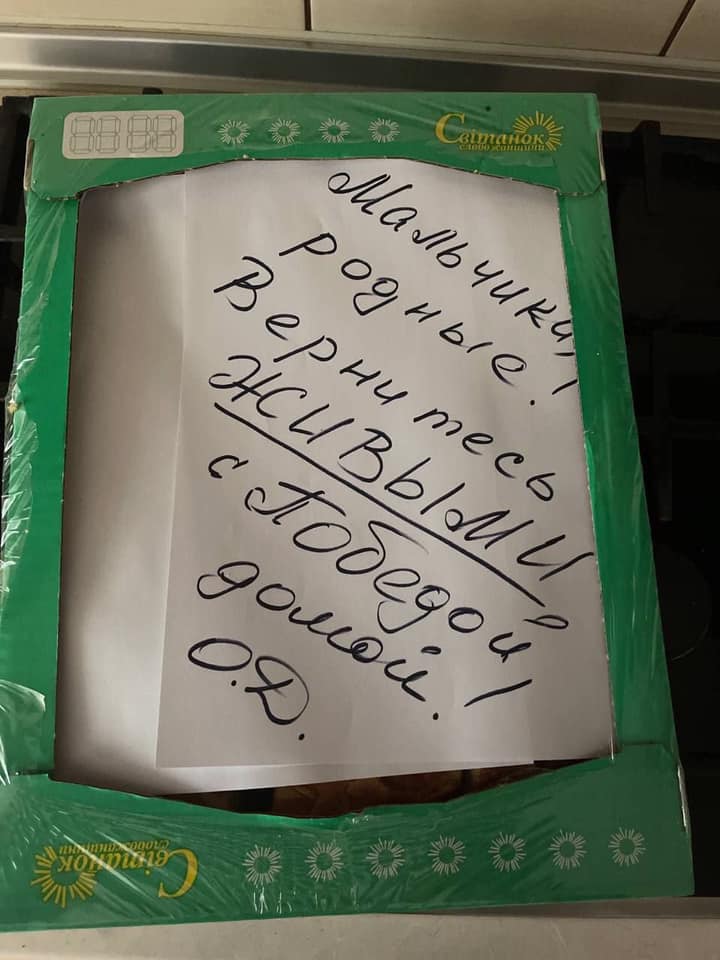 Світанок
слобожанщини
Мальчики,
родные!
Вернитесь
ЖИВЫМИ
с Победой
домой!
О.Д.
Світанок
слобожанщини